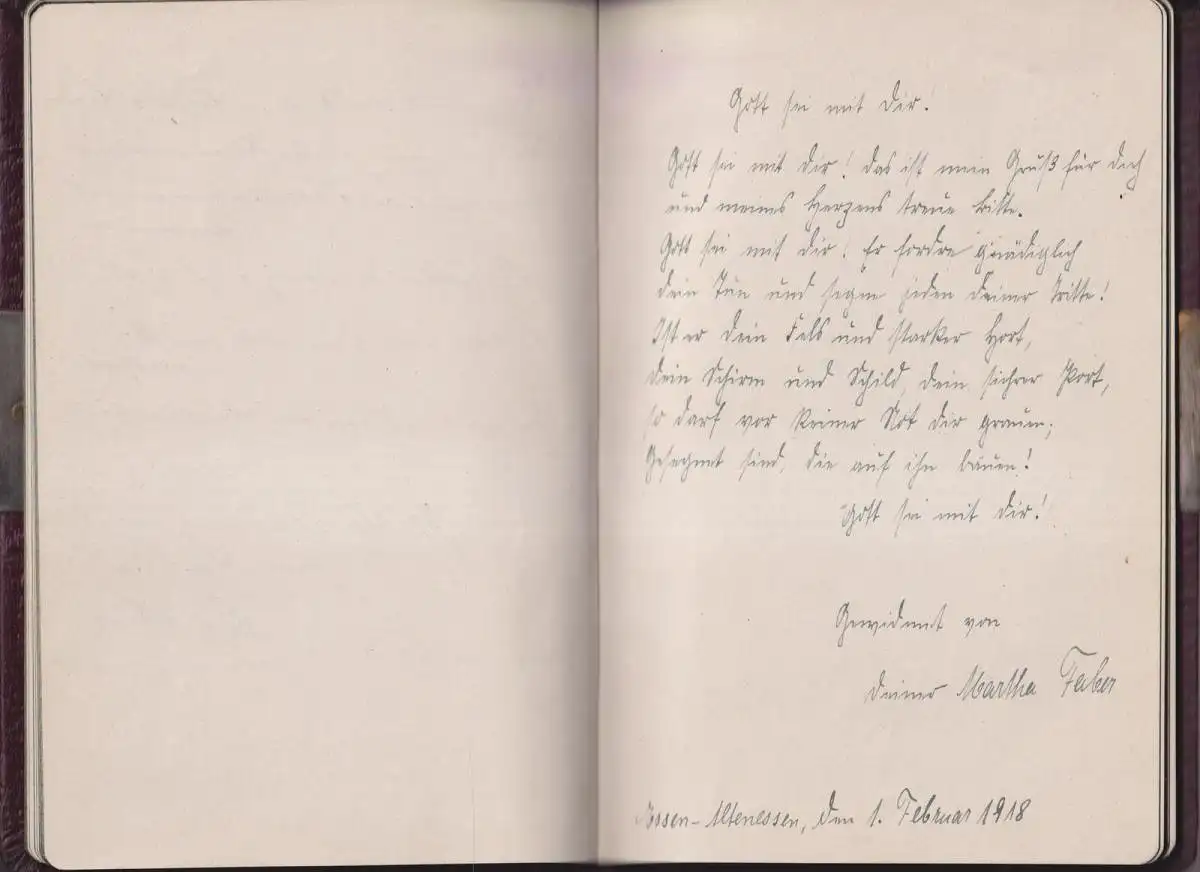 Gott sei mit Dir!
Gott sei mit Dir! Das ist mein Gruß für Dich
und meines Herzens treue Bitte.
Gott sei mit Dir! Er fordre gnädiglich
Dein Tun und segne jeden Deiner Tritte!
Ist er Dein Fels und starker Hort,
Dein Schirm und Schild, Dein sichrer Port,
so darf vor keiner Not Dir grauen;
Gesegnet sind, die auf ihn bauen!
Gott sei mit Dir!
Gewidmet von
Deiner Martha Faber
Essen-Altenessen, den 1. Februar 1918